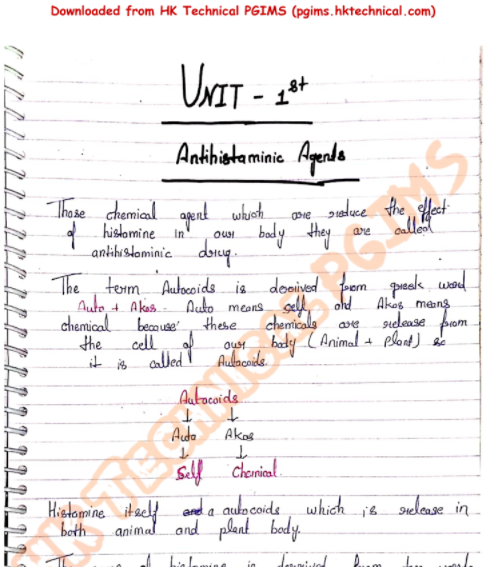 Downloaded from HK Technical PGIMS (pgims.hktechnical.com)
UNIT - 1st
Antihistaminic Agents
Those chemical agent which are reduce the effect
of histamine in our body they are called
antihistaminic drug.
The term Autocoids is derived from greek word
Auto + Akos. Auto means self and Akos means
chemical because these chemicals are release from
the cell of our body (Animal + plant) so
it is called Autacoids.
Autocoids
↓ ↓
Auto Akos
↓ ↓
Self Chemical.
Histamine itself a autocoids which is release in
both animal and plant body.
HK TECHNICAL PGIMS